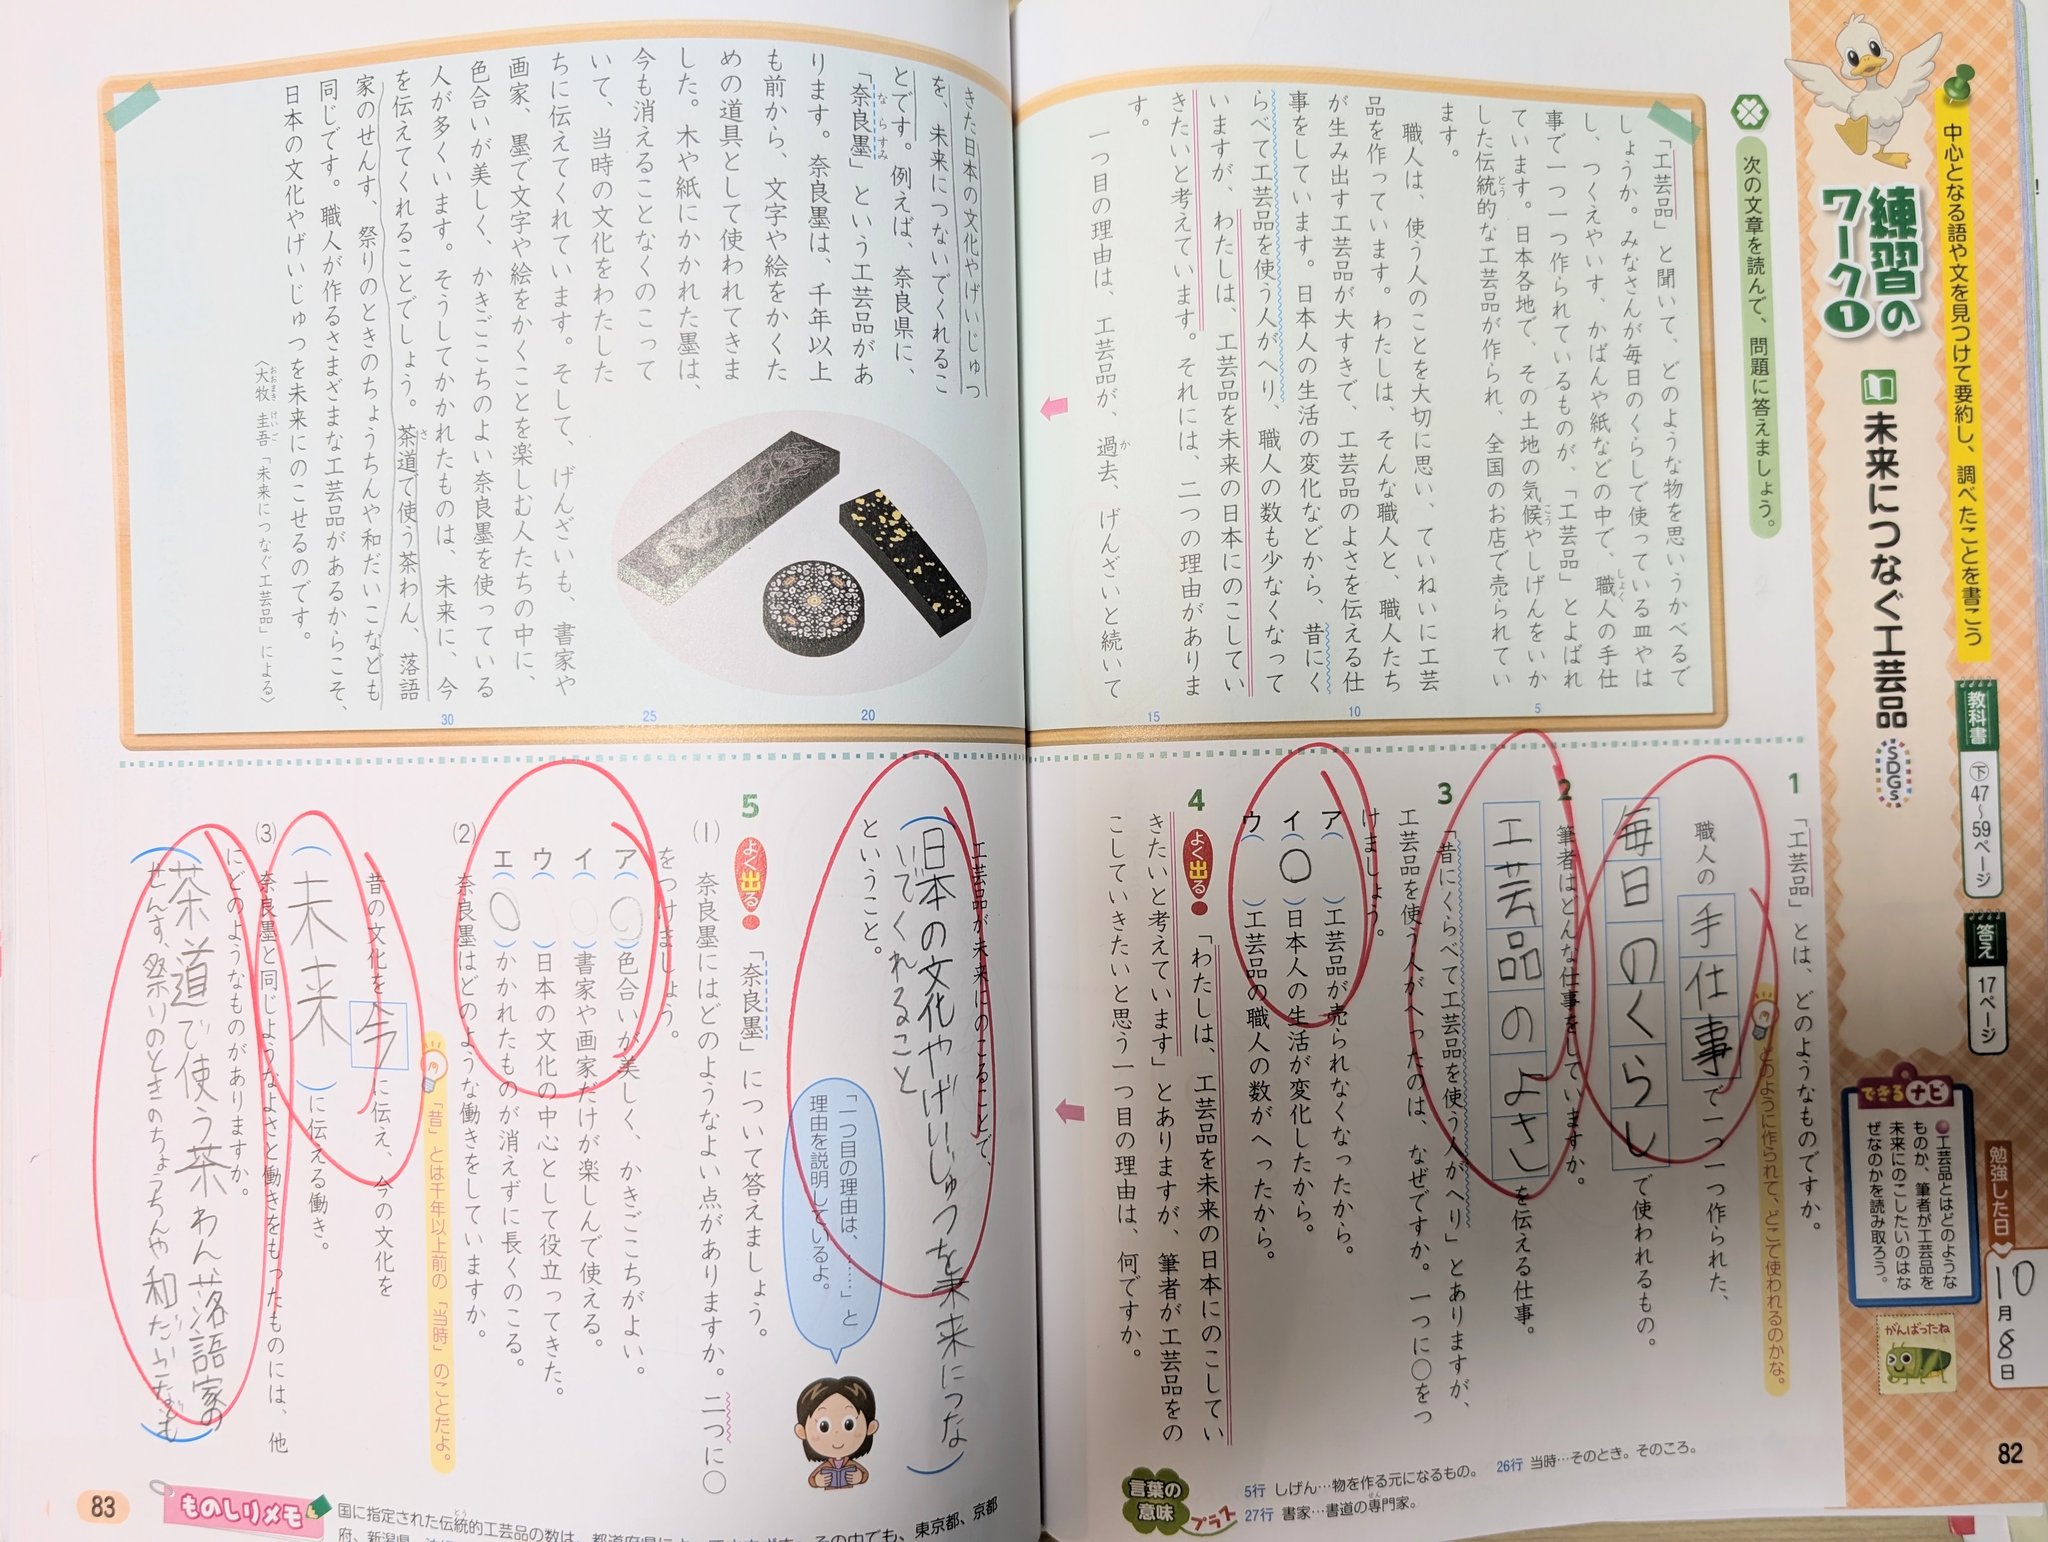 中心となる語や文を見つけて要約し、調べたことを書こう
練習の
ワーク1
未来につなぐ工芸品
SDGs
教科書
下47〜59ページ
答え
17ページ
できるナビ
工芸品とはどのような
ものか、筆者が工芸品を
未来にのこしたいのはな
ぜなのかを読み取ろう。
勉強した日
10月8日
がんばったね
82
次の文章を読んで、問題に答えましょう。
「工芸品」と聞いて、どのような物を思いうかべるで
しょうか。みなさんが毎日のくらしで使っている皿やは
し、つくえやいす、かばんや紙などの中で、職人の手仕
事で一つ一つ作られているものが、「工芸品」とよばれ
ています。日本各地で、その土地の気候やしげんをいか
した伝統的な工芸品が作られ、全国のお店で売られてい
ます。
職人は、使う人のことを大切に思い、ていねいに工芸
品を作っています。わたしは、そんな職人と、職人たち
が生み出す工芸品が大すきで、工芸品のよさを伝える仕
事をしています。日本人の生活の変化などから、昔にく
らべて工芸品を使う人がへり、職人の数も少なくなって
いますが、わたしは、工芸品を未来の日本にのこしてい
きたいと考えています。それには、二つの理由がありま
す。
一つ目の理由は、工芸品が、過去、げんざいと続いて
5
10
15
きた日本の文化やげいじゅつ
を、未来につないでくれるこ
とです。例えば、奈良県に、
「奈良墨」という工芸品があ
ります。奈良墨は、千年以上
も前から、文字や絵をかくた
めの道具として使われてきま
した。木や紙にかかれた墨は、
今も消えることなくのこって
いて、当時の文化をわたした
ちに伝えてくれています。そして、げんざいも、書家や
画家、墨で文字や絵をかくことを楽しむ人たちの中に、
色合いが美しく、かきごこちのよい奈良墨を使っている
人が多くいます。そうしてかかれたものは、未来に、今
を伝えてくれることでしょう。茶道で使う茶わん、落語
家のせんす、祭りのときのちょうちんや和だいこなども
同じです。職人が作るさまざまな工芸品があるからこそ、
日本の文化やげいじゅつを未来にのこせるのです。
〈大牧 圭吾「未来につなぐ工芸品」による〉
20
25
30
1 「工芸品」とは、どのようなものですか。
どのように作られて、どこで使われるのかな。
職人の手仕事で一つ一つ作られた、
毎日のくらしで使われるもの。
2 筆者はどんな仕事をしていますか。
工芸品のよさを伝える仕事。
3 「昔にくらべて工芸品を使う人がへり」とありますが、
工芸品を使う人がへったのは、なぜですか。一つに○をつ
けましょう。
ア( )工芸品が売られなくなったから。
イ(○)日本人の生活が変化したから。
ウ( )工芸品の職人の数がへったから。
4 よく出る 「わたしは、工芸品を未来の日本にのこしてい
きたいと考えています」とありますが、筆者が工芸品をの
こしていきたいと思う一つ目の理由は、何ですか。
言葉の意味プラス
5行 しげん…物を作る元になるもの。 26行 当時…そのとき。そのころ。
27行 書家…書道の専門家。
工芸品が未来にのこることで、
(日本の文化やげいじゅつを未来につな
いでくれること)
ということ。
「一つ目の理由は、……」と
理由を説明しているよ。
5 よく出る 「奈良墨」について答えましょう。
(1) 奈良墨にはどのようなよい点がありますか。二つに○
をつけましょう。
ア(○)色合いが美しく、かきごこちがよい。
イ( )書家や画家だけが楽しんで使える。
ウ( )日本の文化の中心として役立ってきた。
エ(○)かかれたものが消えずに長くのこる。
(2) 奈良墨はどのような働きをしていますか。
「昔」とは千年以上前の「当時」のことだよ。
昔の文化を今に伝え、今の文化を
(未来)に伝える働き。
(3) 奈良墨と同じようなよさと働きをもったものには、他
にどのようなものがありますか。
(茶道で使う茶わん、落語家の
せんす、祭りのときのちょうちんや和だいこなども)
83
ものしりメモ
国に指定された伝統的工芸品の数は、都道府県によって
その中でも、東京都、京都
府、新潟県、